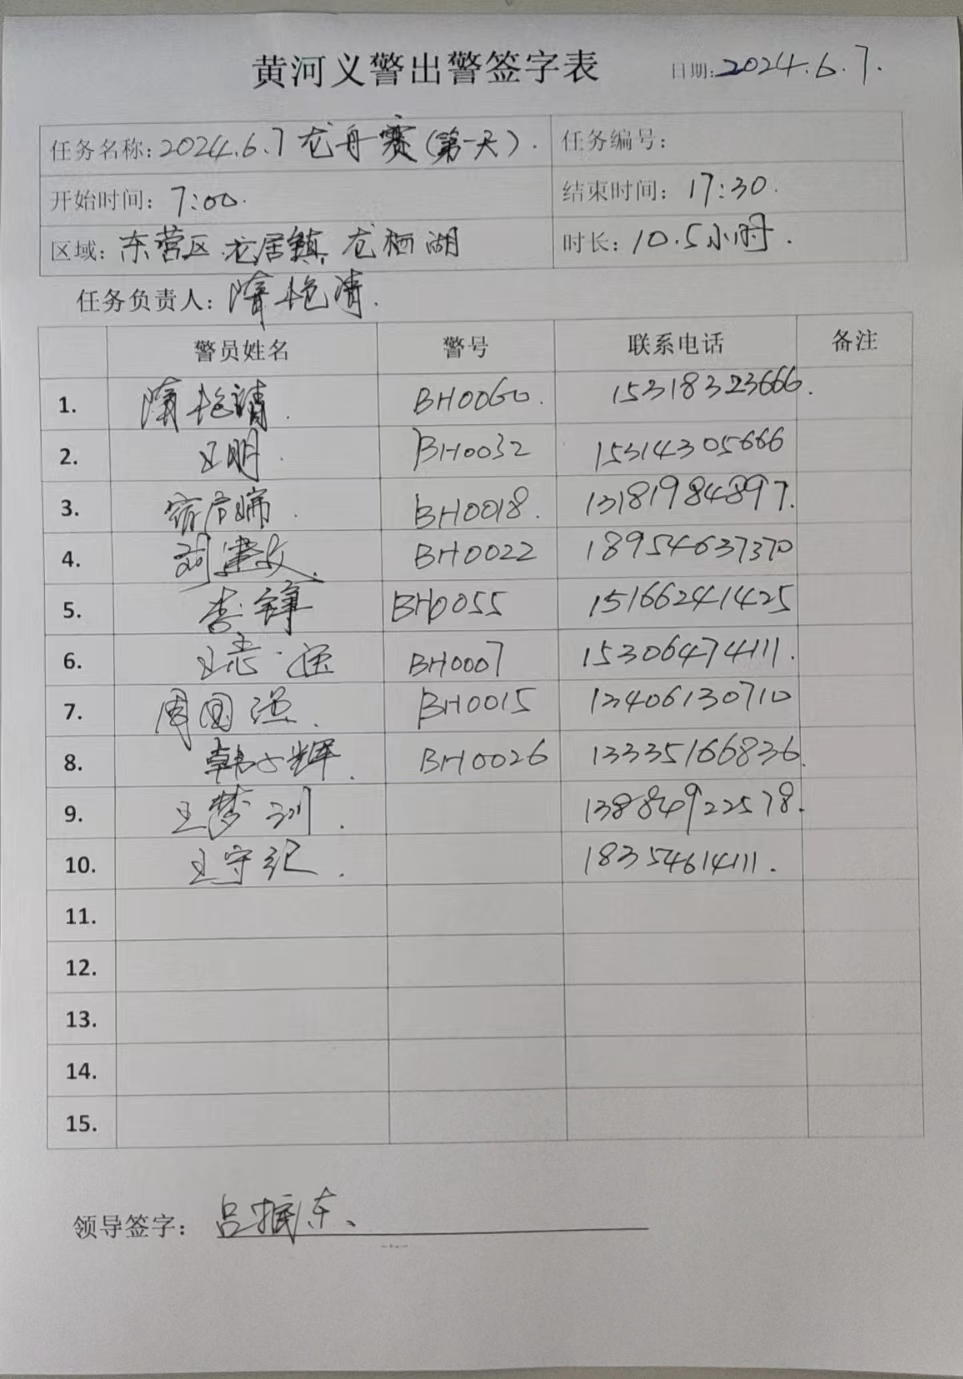 黄河义警出警签字表 日期:2024.6.7.
任务名称:2024.6.7龙舟赛(第一天). 任务编号:
开始时间:7:00. 结束时间:17:30.
区域:东营区.龙居镇.龙栖湖 时长:10.5小时.
任务负责人:隋艳清.
警员姓名 警号 联系电话 备注
1. 隋艳清. BH0060. 15318323666.
2. 王明. BH0032 15314305666
3. BH0018. 13181984897.
4. 刘建文. BH0022 18954637370
5. 李锋 BH0055 15166241425
6. 王志远 BH0007 15306474111.
7. 周国强. BH0015 13406130710
8. 韩小辉. BH0026 13335166836.
9. 王梦圳. 13884922578.
10. 王守纪. 18354614111.
11.
12.
13.
14.
15.
领导签字:吕振东、